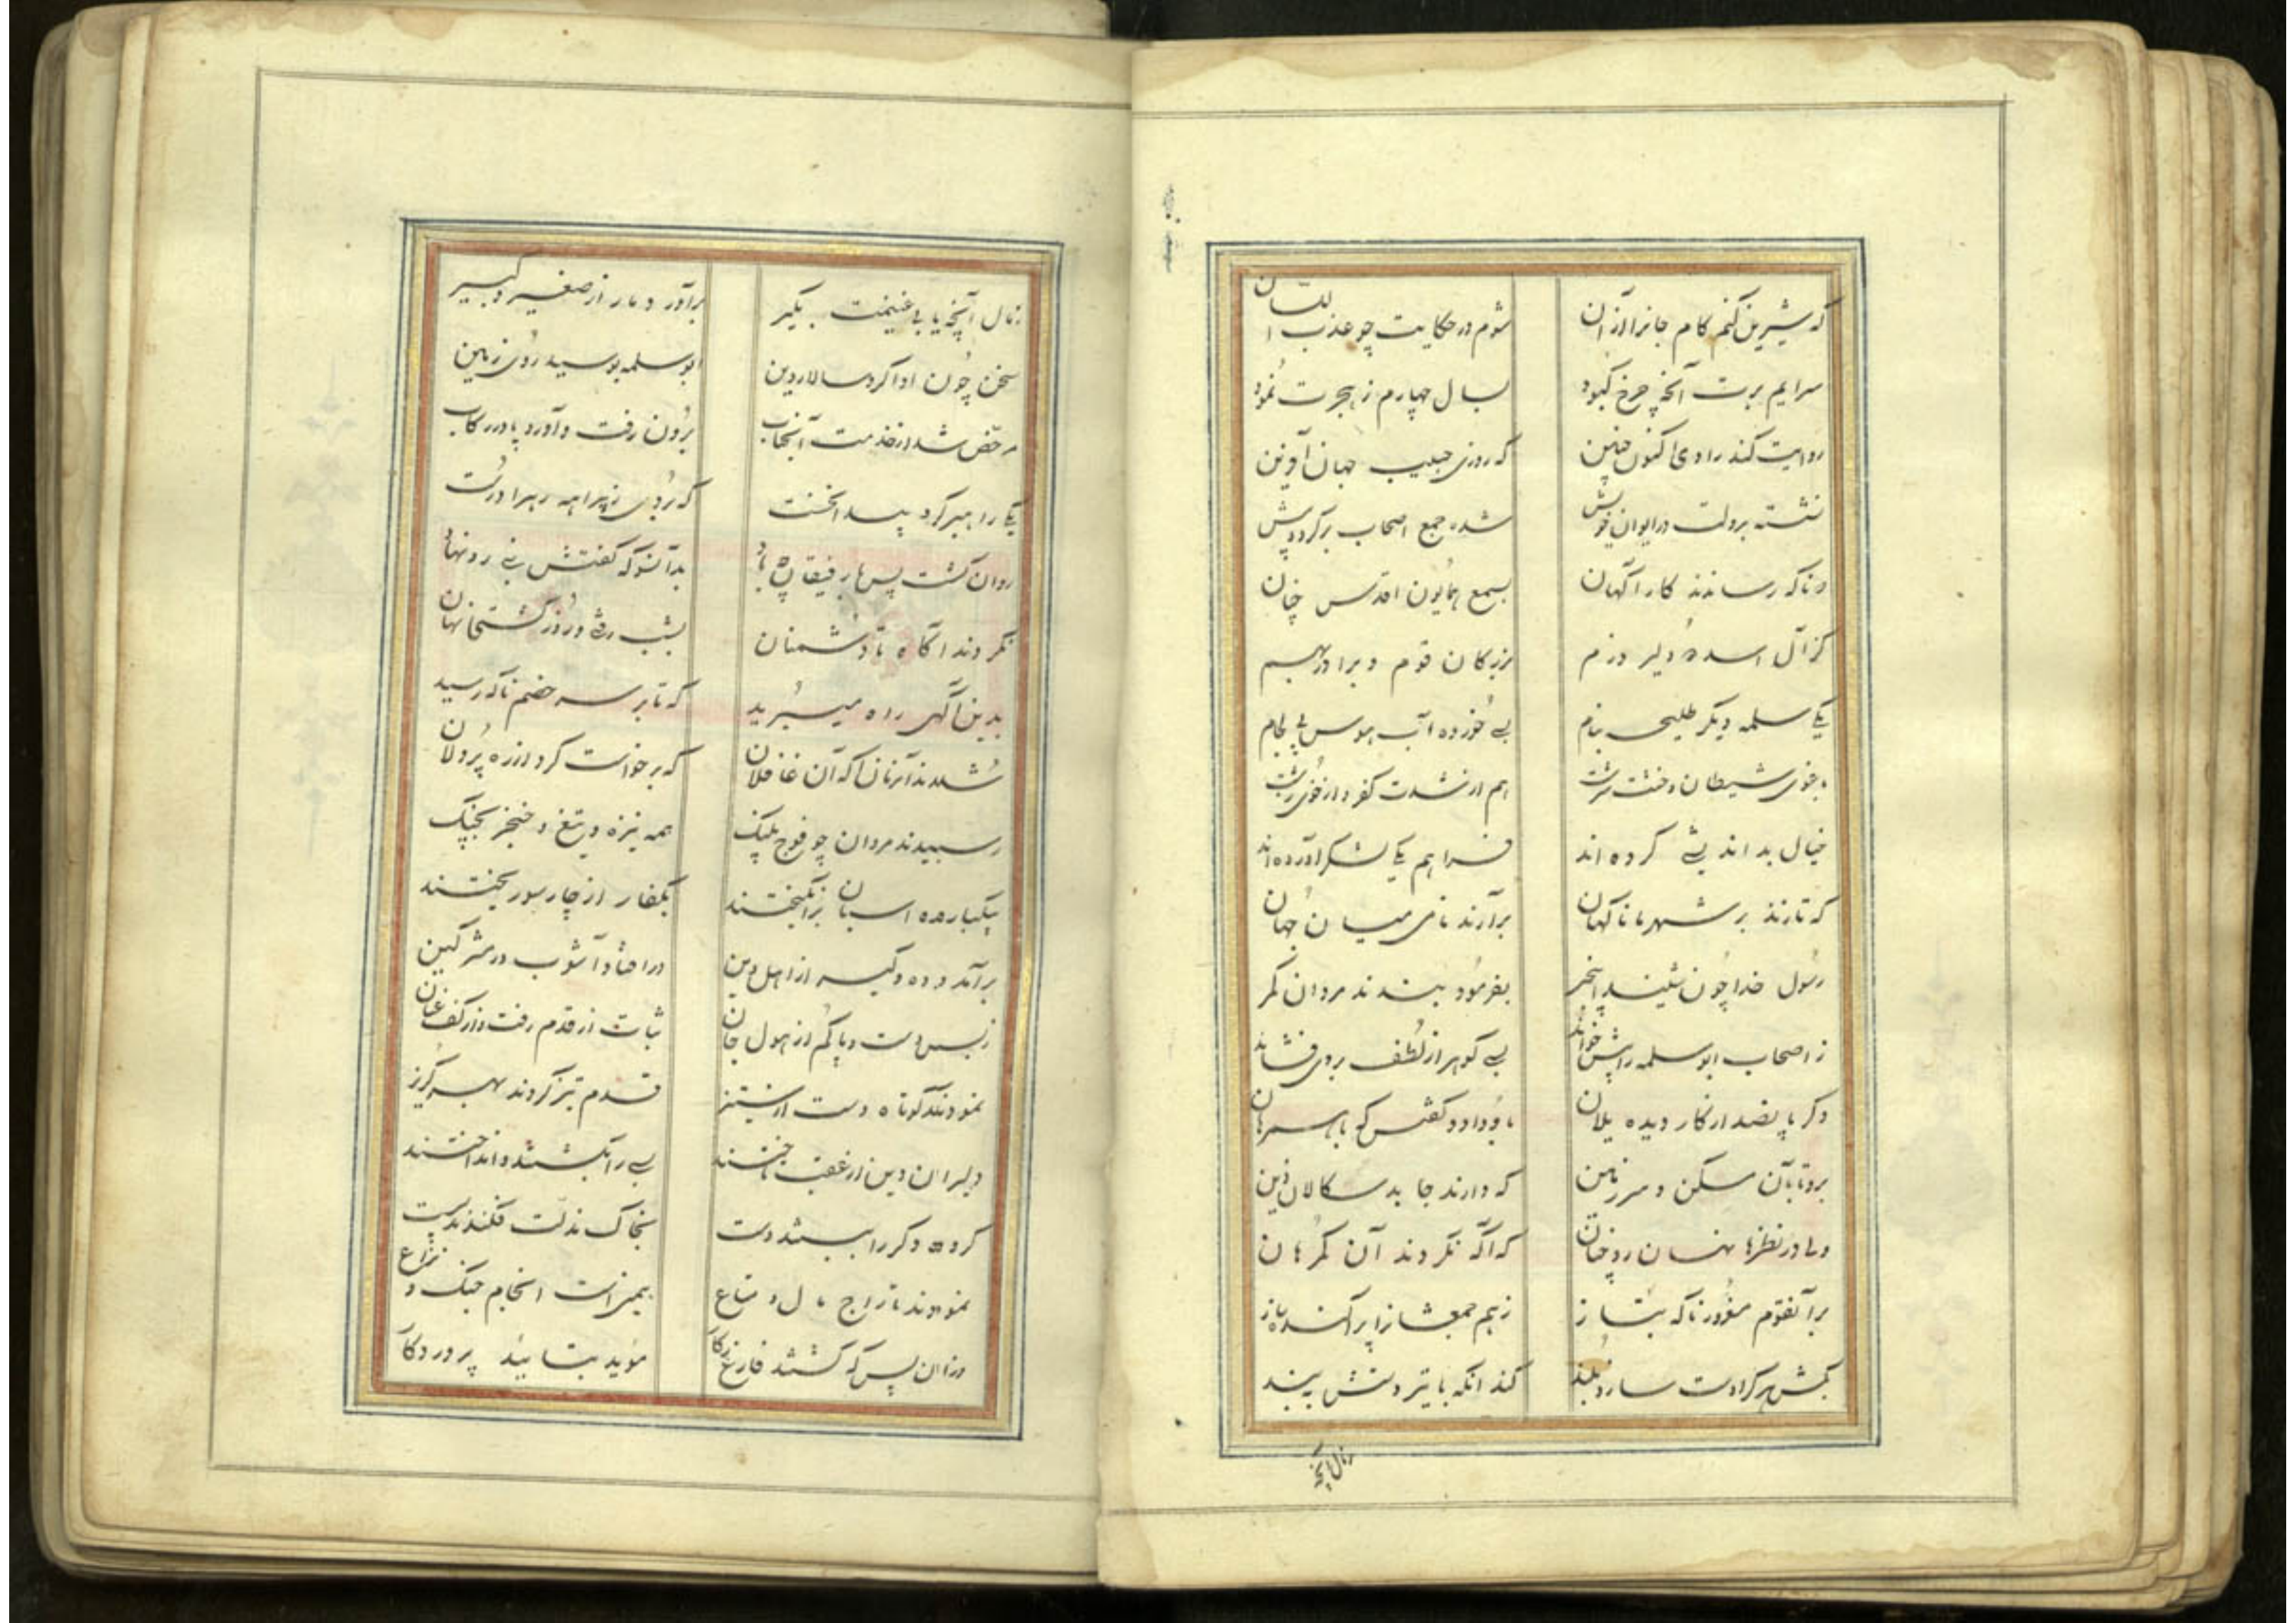 که شیرین کنم کام جانرا از آن شوم در حکایت چو عذب اللسان
سرایم برت آنچه چرخ کبود بسال چهارم ز هجرت نمود
روایت کند راوی اکنون چنین که روزی حبیب جهان آفرین
نشسته بدولت در ایوان خویش شده جمع اصحاب بر گرد و پیش
که رساندند کار آگهان بسمع همایون اقدس چنان
کز آل اسد دلیر و رزم بزرگان قوم و برادر بهم
یکی سلمه دیگر طلیحه بنام بی خورده آب هوس
شیطان هم از شدت کفر و از خوی زشت
خیال بد اندیشی کرده اند فراهم یکی لشکر آورده اند
که تازند بر شهر ما ناگهان برآرند نامی میان جهان
رسول خدا چون شنید اینخبر بفرمود بندند مردان کمر
ز اصحاب ابو سلمه را پیش خواند بسی گوهر از لطف بر وی فشاند
دگر پانصد از کار دیده یلان باو داد و گفتش که با همرهان
برو تا بآن مسکن و سرزمین که دارند جا بد سکالان دین
ولی در نظرها نهان رو چنان که آگه نگردند آن گمرهان
بر آنقوم مغرور ناگه بتاز ز هم جمعشانرا پراکنده ساز
بکش هر کرا دست سازد بلند کند آنکه با تو به بند
ز مال آنچه
ز مال آنچه یابی غنیمت بگیر برآور دمار از صغیر و کبیر
سخن چون ادا کرد سالار دین ابو سلمه بوسید روی زمین
مرخص شد از خدمت آنجناب برون رفت و آورد پا در رکاب
یکی راهبر کرد پیدا نخست که بودی ز بیراهه رهرا درست
روان گشت پس با رفیقان چو باد بدآنسو که گفتش نبی رو نهاد
نگردند آگاه تا دشمنان بشب رفتی و روز گشتی نهان
بدین آگهی راه میسپرید که تا بر سر خصم ناگه رسید
شدند آنزمان آگه آن غافلان که برخواست گرد از ره پردلان
رسیدند مردان چو فوج پلنگ همه نیزه و تیغ و خنجر بچنگ
بیکباره اسبان برانگیختند بکفار از چار سو ریختند
برآمد ده و گیر از اهل دین در افتاد آشوب در مشرکین
ز بس دست و پا گم از هول جان ثبات از قدم رفت و از کف عنان
نمودند کوتاه دست از ستیز قدم تیز کردند بهر گریز
دلیران دین از عقب تاختند بسی را بکشتند و انداختند
گروه دگر را ببستند دست بخاک مذلت فکندند پست
نمودند تاراج مال و متاع همین است انجام جنگ و نزاع
وزان پس که گشتند فارغ ز کار موید بتائید پروردگار